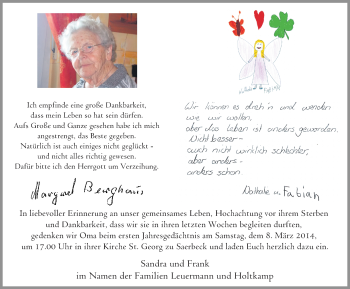 Ich empfinde eine große Dankbarkeit,
dass mein Leben so hat sein dürfen.
Aufs Große und Ganze gesehen habe ich mich
angestrengt, das Beste gegeben.
Natürlich ist auch einiges nicht geglückt -
und nicht alles richtig gewesen.
Dafür bitte ich den Herrgott um Verzeihung.
Margret Berghaus
Wir können es dreh'n und wenden
wie wir wollen,
aber das Leben ist anders geworden.
Nicht besser -
auch nicht wirklich schlechter,
aber anders -
anders schön.
Nathalie u. Fabian
In liebevoller Erinnerung an unser gemeinsames Leben, Hochachtung vor ihrem Sterben
und Dankbarkeit, dass wir sie in ihren letzten Wochen begleiten durften,
gedenken wir Oma beim ersten Jahresgedächtnis am Samstag, dem 8. März 2014,
um 17.00 Uhr in ihrer Kirche St. Georg zu Saerbeck und laden Euch herzlich dazu ein.
Sandra und Frank
im Namen der Familien Leuermann und Holtkamp